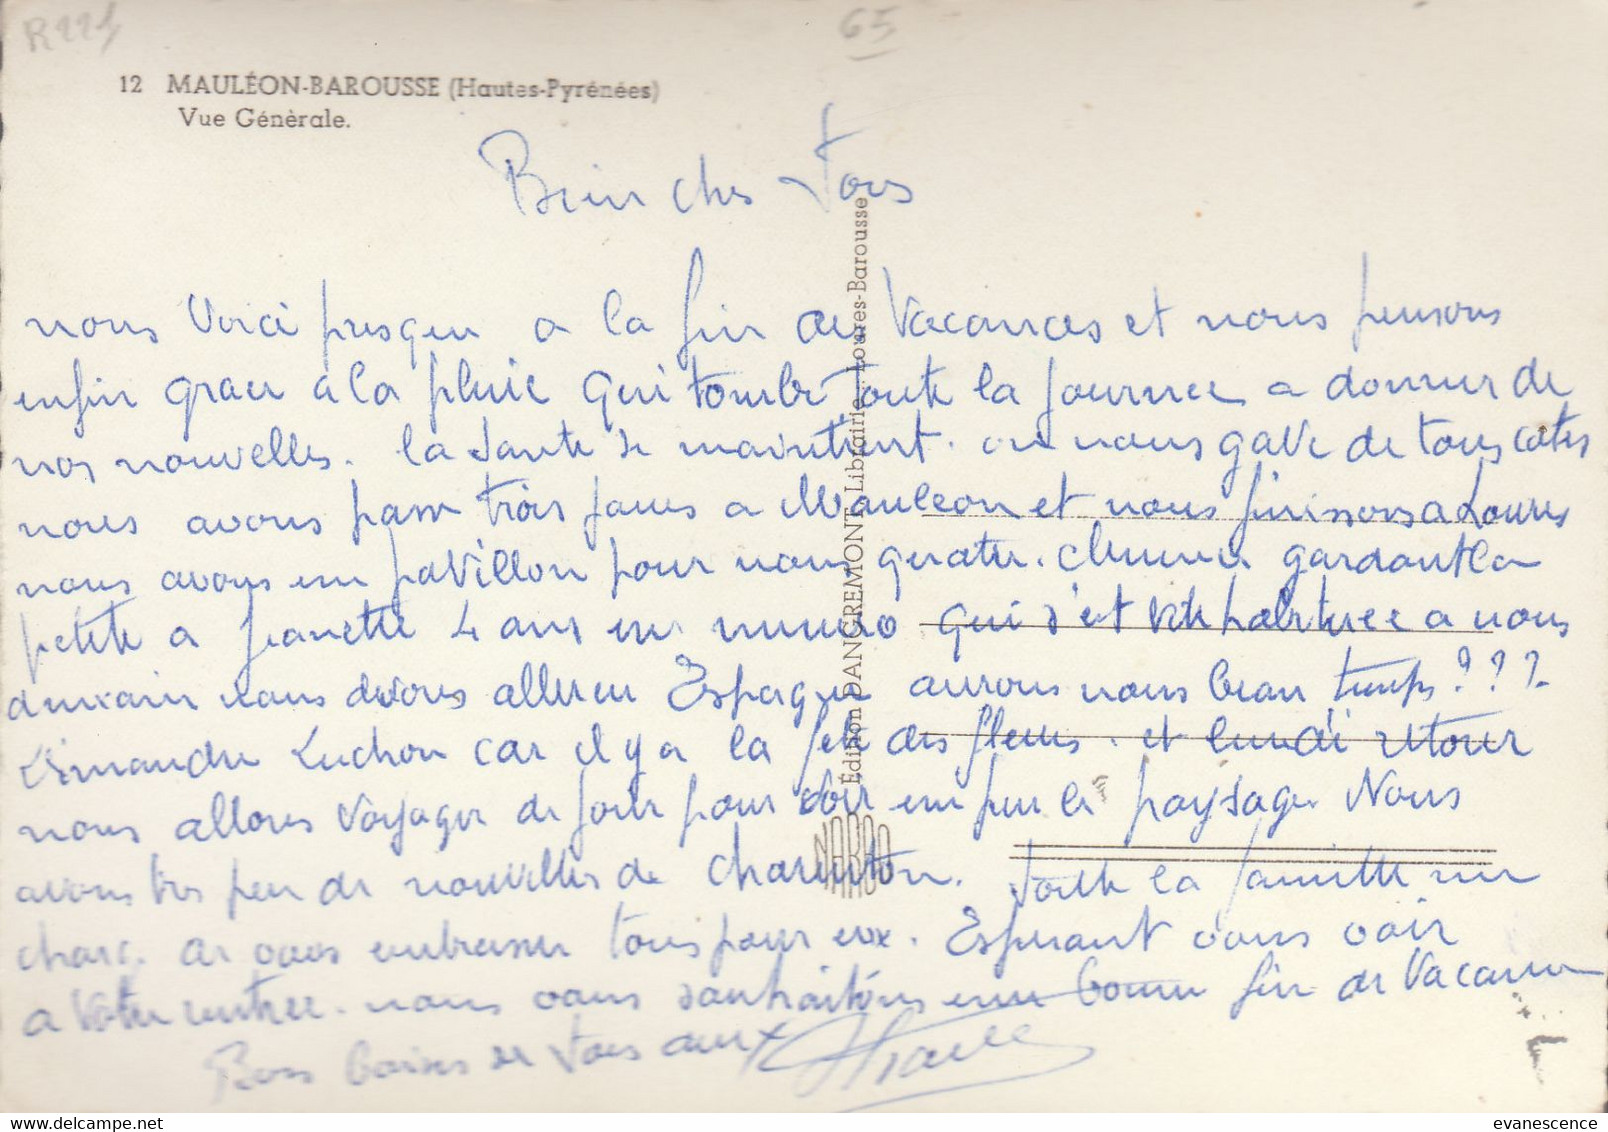 R224
65
12 MAULÉON-BAROUSSE (Hautes-Pyrénées)
Vue Génèrale.
Bien chers Tous
nous voici presque a la fin des vacances et nous pensons
enfin grace à la pluie qui tombe toute la journee a donner de
nos nouvelles. la sante se maintient. on nous gave de tous cotes
nous avons passe trois jours a Mauleon et nous finissons a Loures
nous avons un pavillon pour nous quatre. gardant la
petite a Jeanette 4 ans un numero qui s'est vite habituee a nous
demain nous devons aller en Espagne aurons nous beau temps ???
Dimanche Luchon car il y a la fete des fleurs. et lundi retour
nous allons voyager de jour pour voir un peu le paysage. Nous
avons tres peu de nouvelles de Charenton. Toute la famille me
charge de vous embrasser tous pour eux. Esperant vous voir
a votre rentree. nous vous souhaitons une bonne fin de vacances
Bons baisers de tous aux
Édition DANGREMONT Librairie - Loures-Barousse
NARBO
evanescence